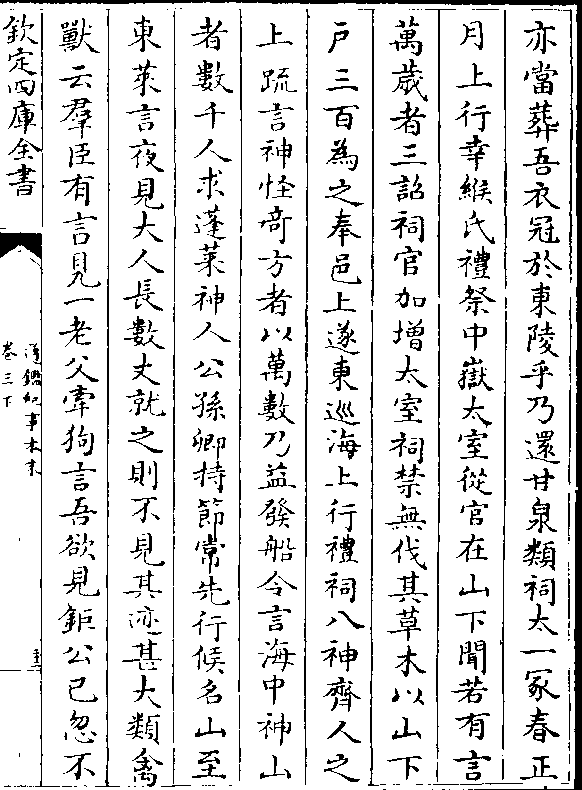 亦當葬吾衣冠於東陵乎乃還甘泉類祠太一冢春正
月上行幸緱氏禮祭中嶽太室從官在山下聞若有言
萬歲者三詔祠官加增太室祠禁無伐其草木以山下
戸三百為之奉邑上遂東巡海上行禮祠八神齊人之
上疏言神怪竒方者以萬數乃益發船令言海中神山
者數千人求蓬萊神人公孫卿持節常先行候名山至
東萊言夜見大人長數丈就之則不見其迹甚大類禽
獸云羣臣有言見一老父牽狗言吾欲見鉅公已忽不
欽定四庫全書
通鑑紀事本末
卷三下